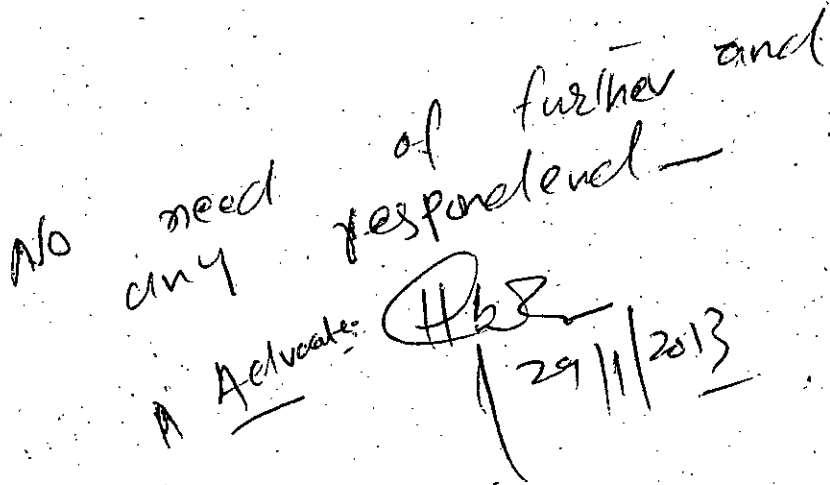 No need of further and
any respondend —
Advocate:
29/1/2013